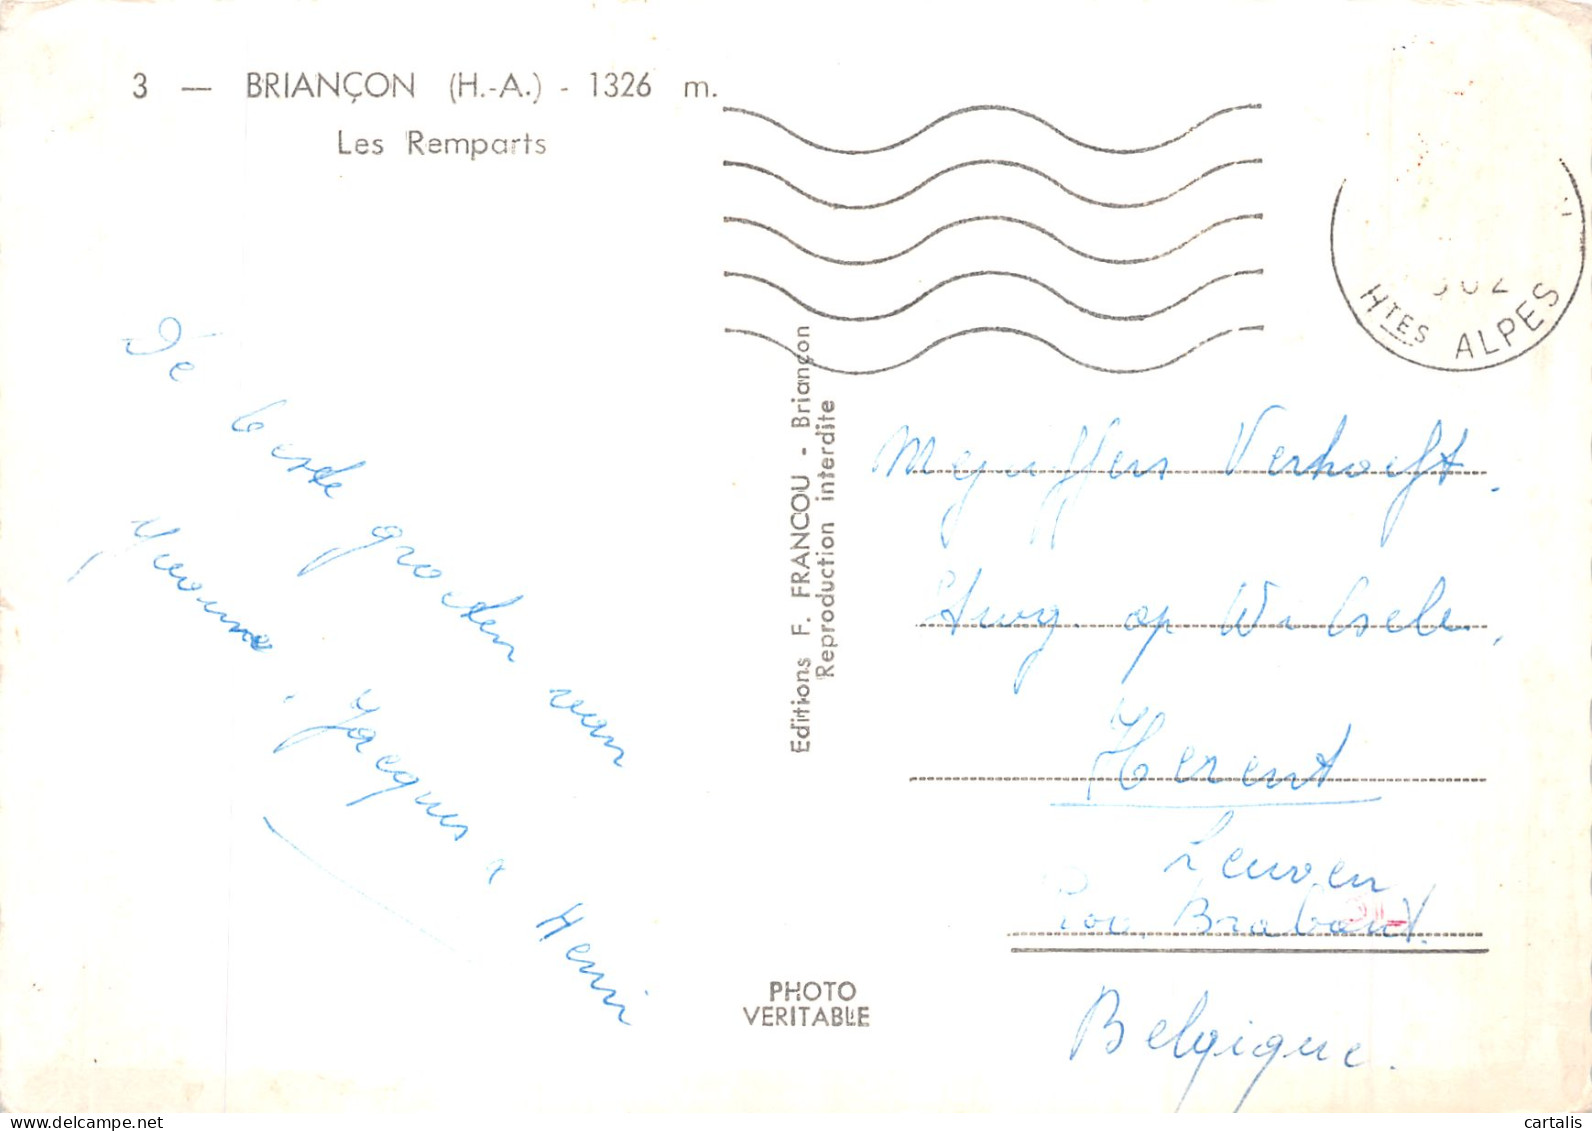 3 — BRIANÇON (H.-A.) - 1326 m.
Les Remparts
De beste groeten van
Yvonne, Jacques & Henri
Editions F. FRANCOU - Briançon
Reproduction interdite
PHOTO
VERITABLE
HTES ALPES
Mejuffers Verhoeft.
Stwg. op Wilsele.
Herent
Leuven
Brabant.
Belgique.
delcampe.net
cartalis